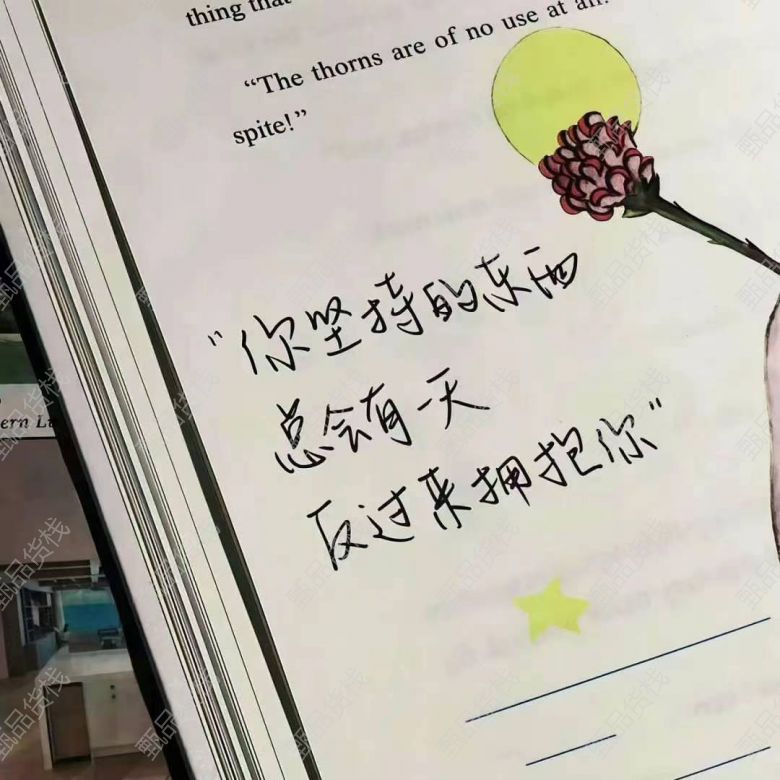 thing that
“The thorns are of no use at all.
spite!”
"你坚持的东西
总会有一天
反过来拥抱你"
ern L
甄品货栈